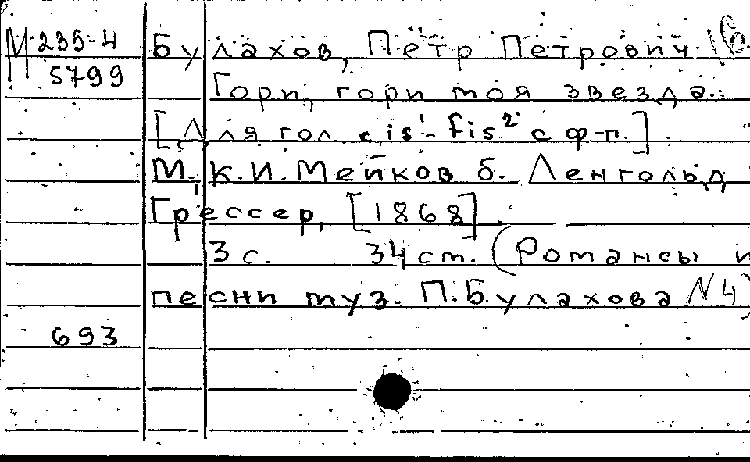 М 235-4
5799
Булахов, Петр Петрович
Гори, гори моя звезда.
[Для гол. cis¹-fis² с ф-п.]
М., К.И. Мейков б. Ленгольд
Грессер, [1868].
3 с. 34 см. (Романсы и
песни муз. П. Булахова N4)
693